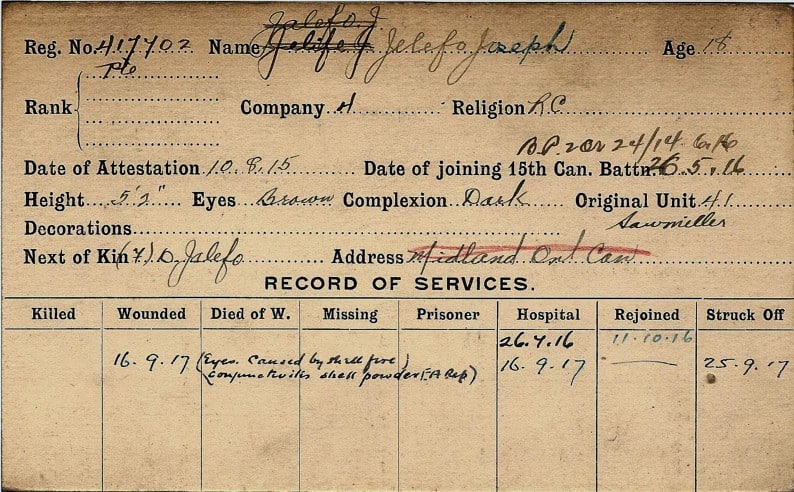 Jalefo. J
Reg. No. 417702 Name Jelife J Jelefo Joseph Age 18
Pte
Rank Company 4 Religion R.C
B.P. 2 or 24/14 6.16
Date of Attestation 10.8.15 Date of joining 15th Can. Battn. 26.5.16
Height 5'2" Eyes Brown Complexion Dark Original Unit 41
Decorations Sawmiller
Next of Kin (F) D. Jalefo Address Midland Ont Can
RECORD OF SERVICES.
Killed Wounded Died of W. Missing Prisoner Hospital Rejoined Struck Off
26.7.16 11.10.16
16.9.17 (Eyes. Caused by shell fire) 16.9.17 25.9.17
conjunctivitis shell powder